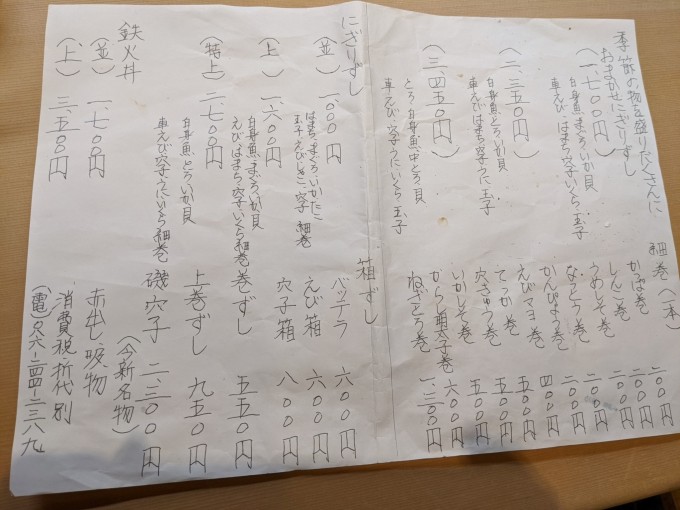 季節の物を盛りだくさんに
おまかせにぎりずし
(一、七〇〇円)
白身魚まぐろいか貝
車えびはまち穴子いくら玉子
(二、三五〇円)
白身魚とろいか貝
車えびはまち穴子うに玉子
(三、四五〇円)
とろ白身魚中とろ貝
車えび穴子うにいくら玉子
細巻(一本)
かっぱ巻 二〇〇円
しんこ巻 二〇〇円
うめしそ巻 二〇〇円
なっとう巻 二〇〇円
かんぴょう巻 二〇〇円
えびマヨ巻 四〇〇円
てっか巻 五〇〇円
穴きゅう巻 五〇〇円
いかしそ巻 五〇〇円
からし明太子巻 六〇〇円
ねぎとろ巻 一、三〇〇円
にぎりずし
(並) 一、〇〇〇円
はまちまぐろいかたこ
玉子えび 穴子 細巻
(上) 一、六〇〇円
白身魚まぐろいか貝
えびはまち穴子いくら細巻
(特上) 二、七〇〇円
白身魚とろいか貝
車えび穴子うにいくら細巻
鉄火丼
(並) 一、七〇〇円
(上) 三、五〇〇円
箱ずし
バッテラ 六〇〇円
えび箱 六〇〇円
穴子箱 八〇〇円
巻ずし 五五〇円
上巻ずし 九五〇円
磯穴子 二、三〇〇円
(今新名物)
赤出し・吸物
消費税・折代別
(電)〇六-二四四-二三八九